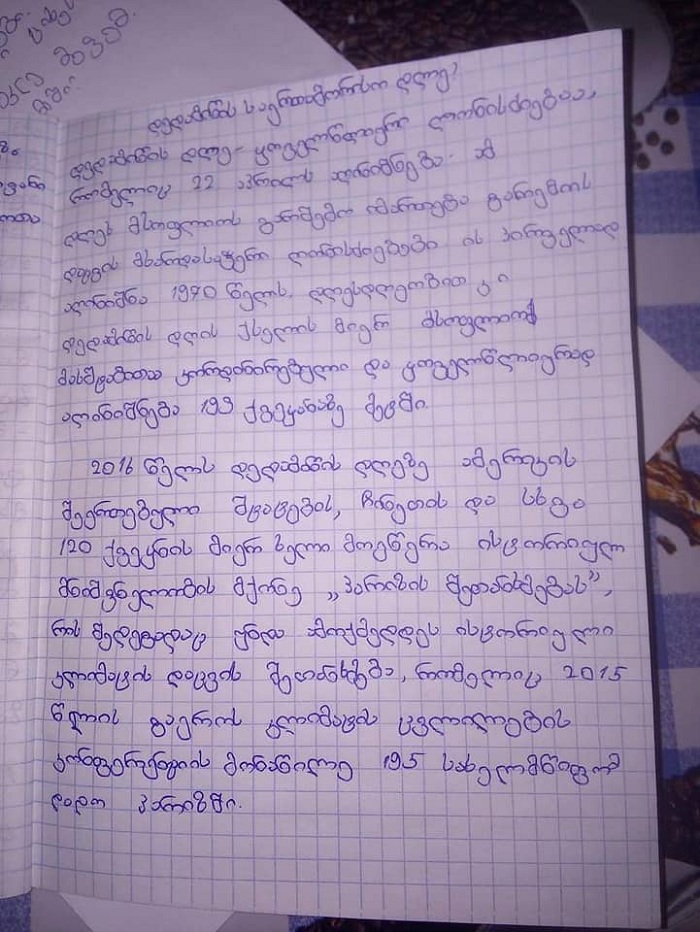 დედამიწის საერთაშორისო დღე!
დედამიწის დღე - ყოველწლიური ღონისძიებაა,
რომელიც 22 აპრილს აღინიშნება. ამ
დღეს მსოფლიოს გარშემო იმართება გარემოს
დაცვის მხარდასაჭერი ღონისძიებები ის პირველად
აღინიშნა 1970 წელს. დღესდღეობით კი
დედამიწის დღის ქსელის მიერ მსოფლიოს
მასშტაბითაა კოორდინირებული და ყოველწლიურად
აღინიშნება 193 ქვეყანაზე მეტში.
2016 წელს დედამიწის დღეზე ამერიკის
შეერთებულმა შტატებმა, ჩინეთმა და სხვა
120 ქვეყნის მიერ ხელი მოეწერა ისტორიული
მნიშვნელობის მქონე „პარიზის შეთანხმებას",
რის შედეგადაც ძალაში შევიდა ისტორიული
კლიმატის დაცვის შეთანხმება, რომელიც 2015
წლის გაეროს კლიმატის ცვლილების
კონფერენციის მონაწილე 195 სახელმწიფომ
დადო პარიზში.